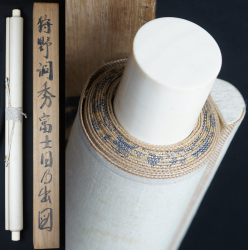 狩野洞秀富士日乃出図